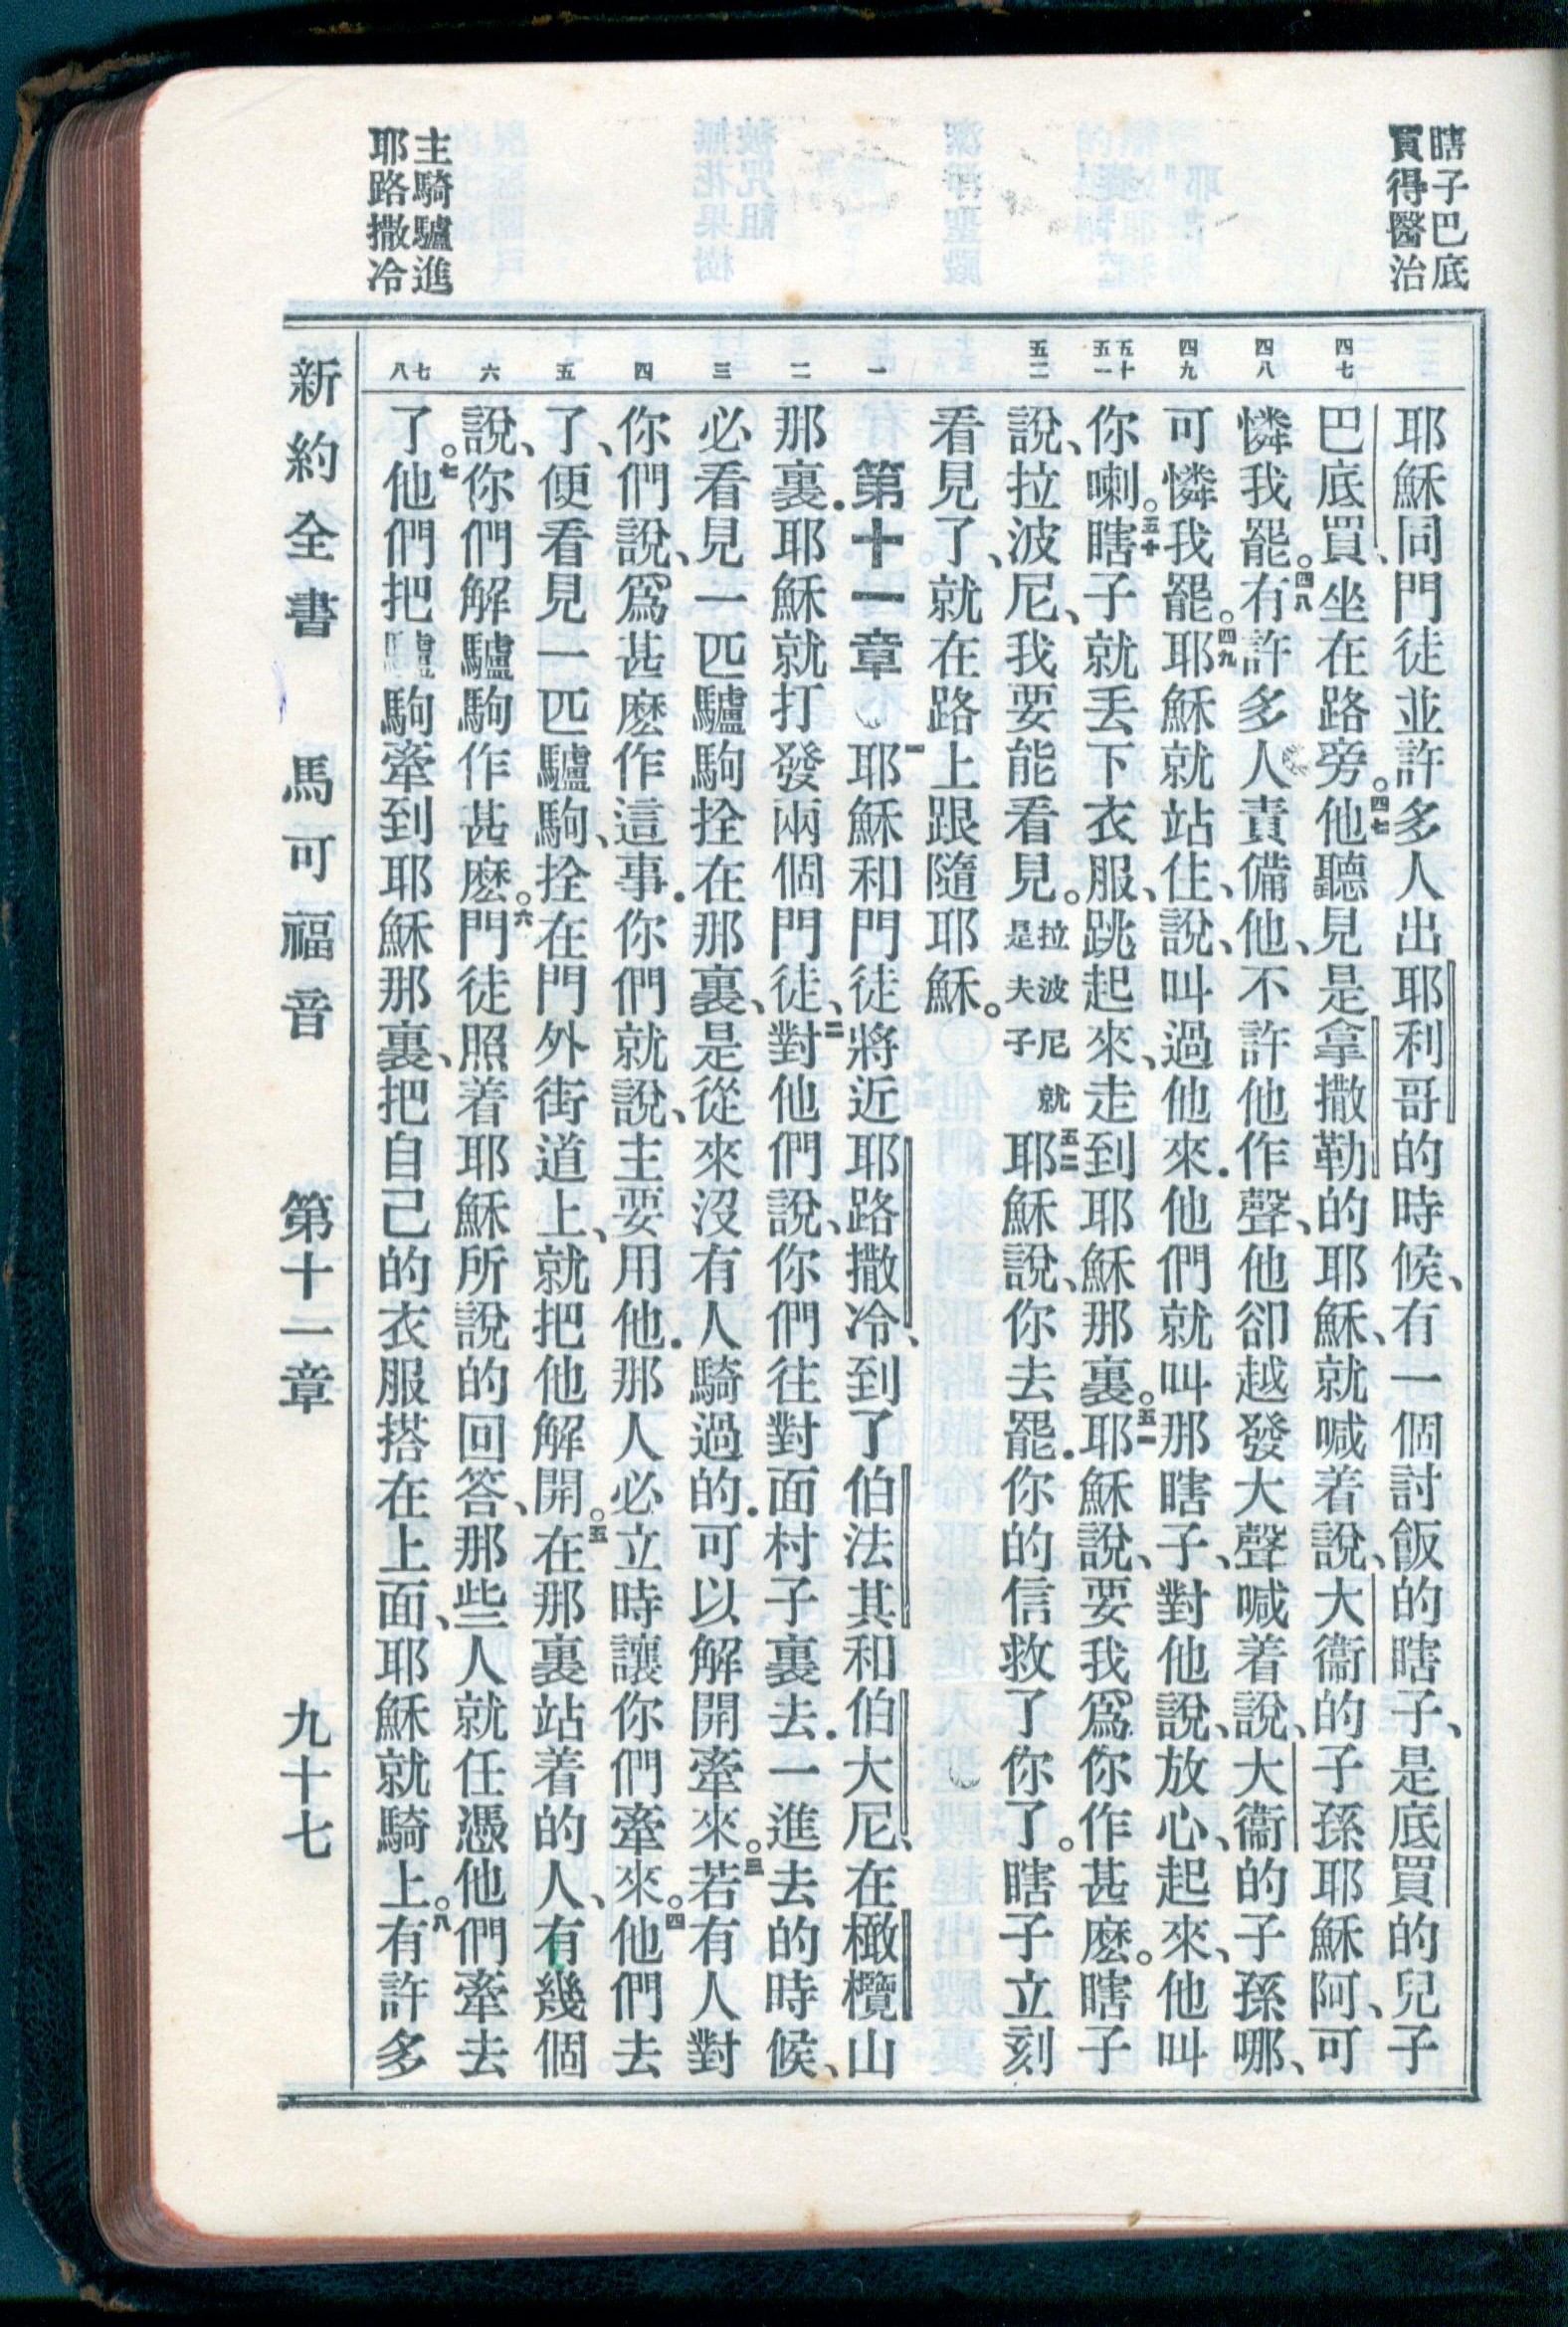 瞎子巴底
買得醫治
主騎驢進
耶路撒冷
四七
四八
四九
五十
五一
五二
一
二
三
四
五
六
七
八
耶穌同門徒並許多人出耶利哥的時候、有一個討飯的瞎子、是底買的兒子
巴底買、坐在路旁。四七他聽見是拿撒勒的耶穌、就喊着說、大衞的子孫耶穌阿、可
憐我罷。四八有許多人責備他、不許他作聲、他卻越發大聲喊着說、大衞的子孫哪、
可憐我罷。四九耶穌就站住、說、叫過他來．他們就叫那瞎子、對他說、放心、起來、他叫
你喇。五十瞎子就丟下衣服、跳起來、走到耶穌那裏。五一耶穌說、要我爲你作甚麽。瞎子
說、拉波尼、我要能看見。拉波尼就是夫子五二耶穌說、你去罷．你的信救了你了。瞎子立刻
看見了、就在路上跟隨耶穌。
第十一章 一耶穌和門徒將近耶路撒冷、到了伯法其和伯大尼、在橄欖山
那裏．耶穌就打發兩個門徒、二對他們說、你們往對面村子裏去．一進去的時候、
必看見一匹驢駒拴在那裏、是從來沒有人騎過的．可以解開牽來。三若有人對
你們說、爲甚麽作這事．你們就說、主要用他．那人必立時讓你們牽來。四他們去
了、便看見一匹驢駒、拴在門外街道上、就把他解開。五在那裏站着的人、有幾個
說、你們解驢駒作甚麽。六門徒照着耶穌所說的回答、那些人就任憑他們牽去
了。七他們把驢駒牽到耶穌那裏、把自己的衣服搭在上面、耶穌就騎上。八有許多
新約全書 馬可福音 第十一章 九十七